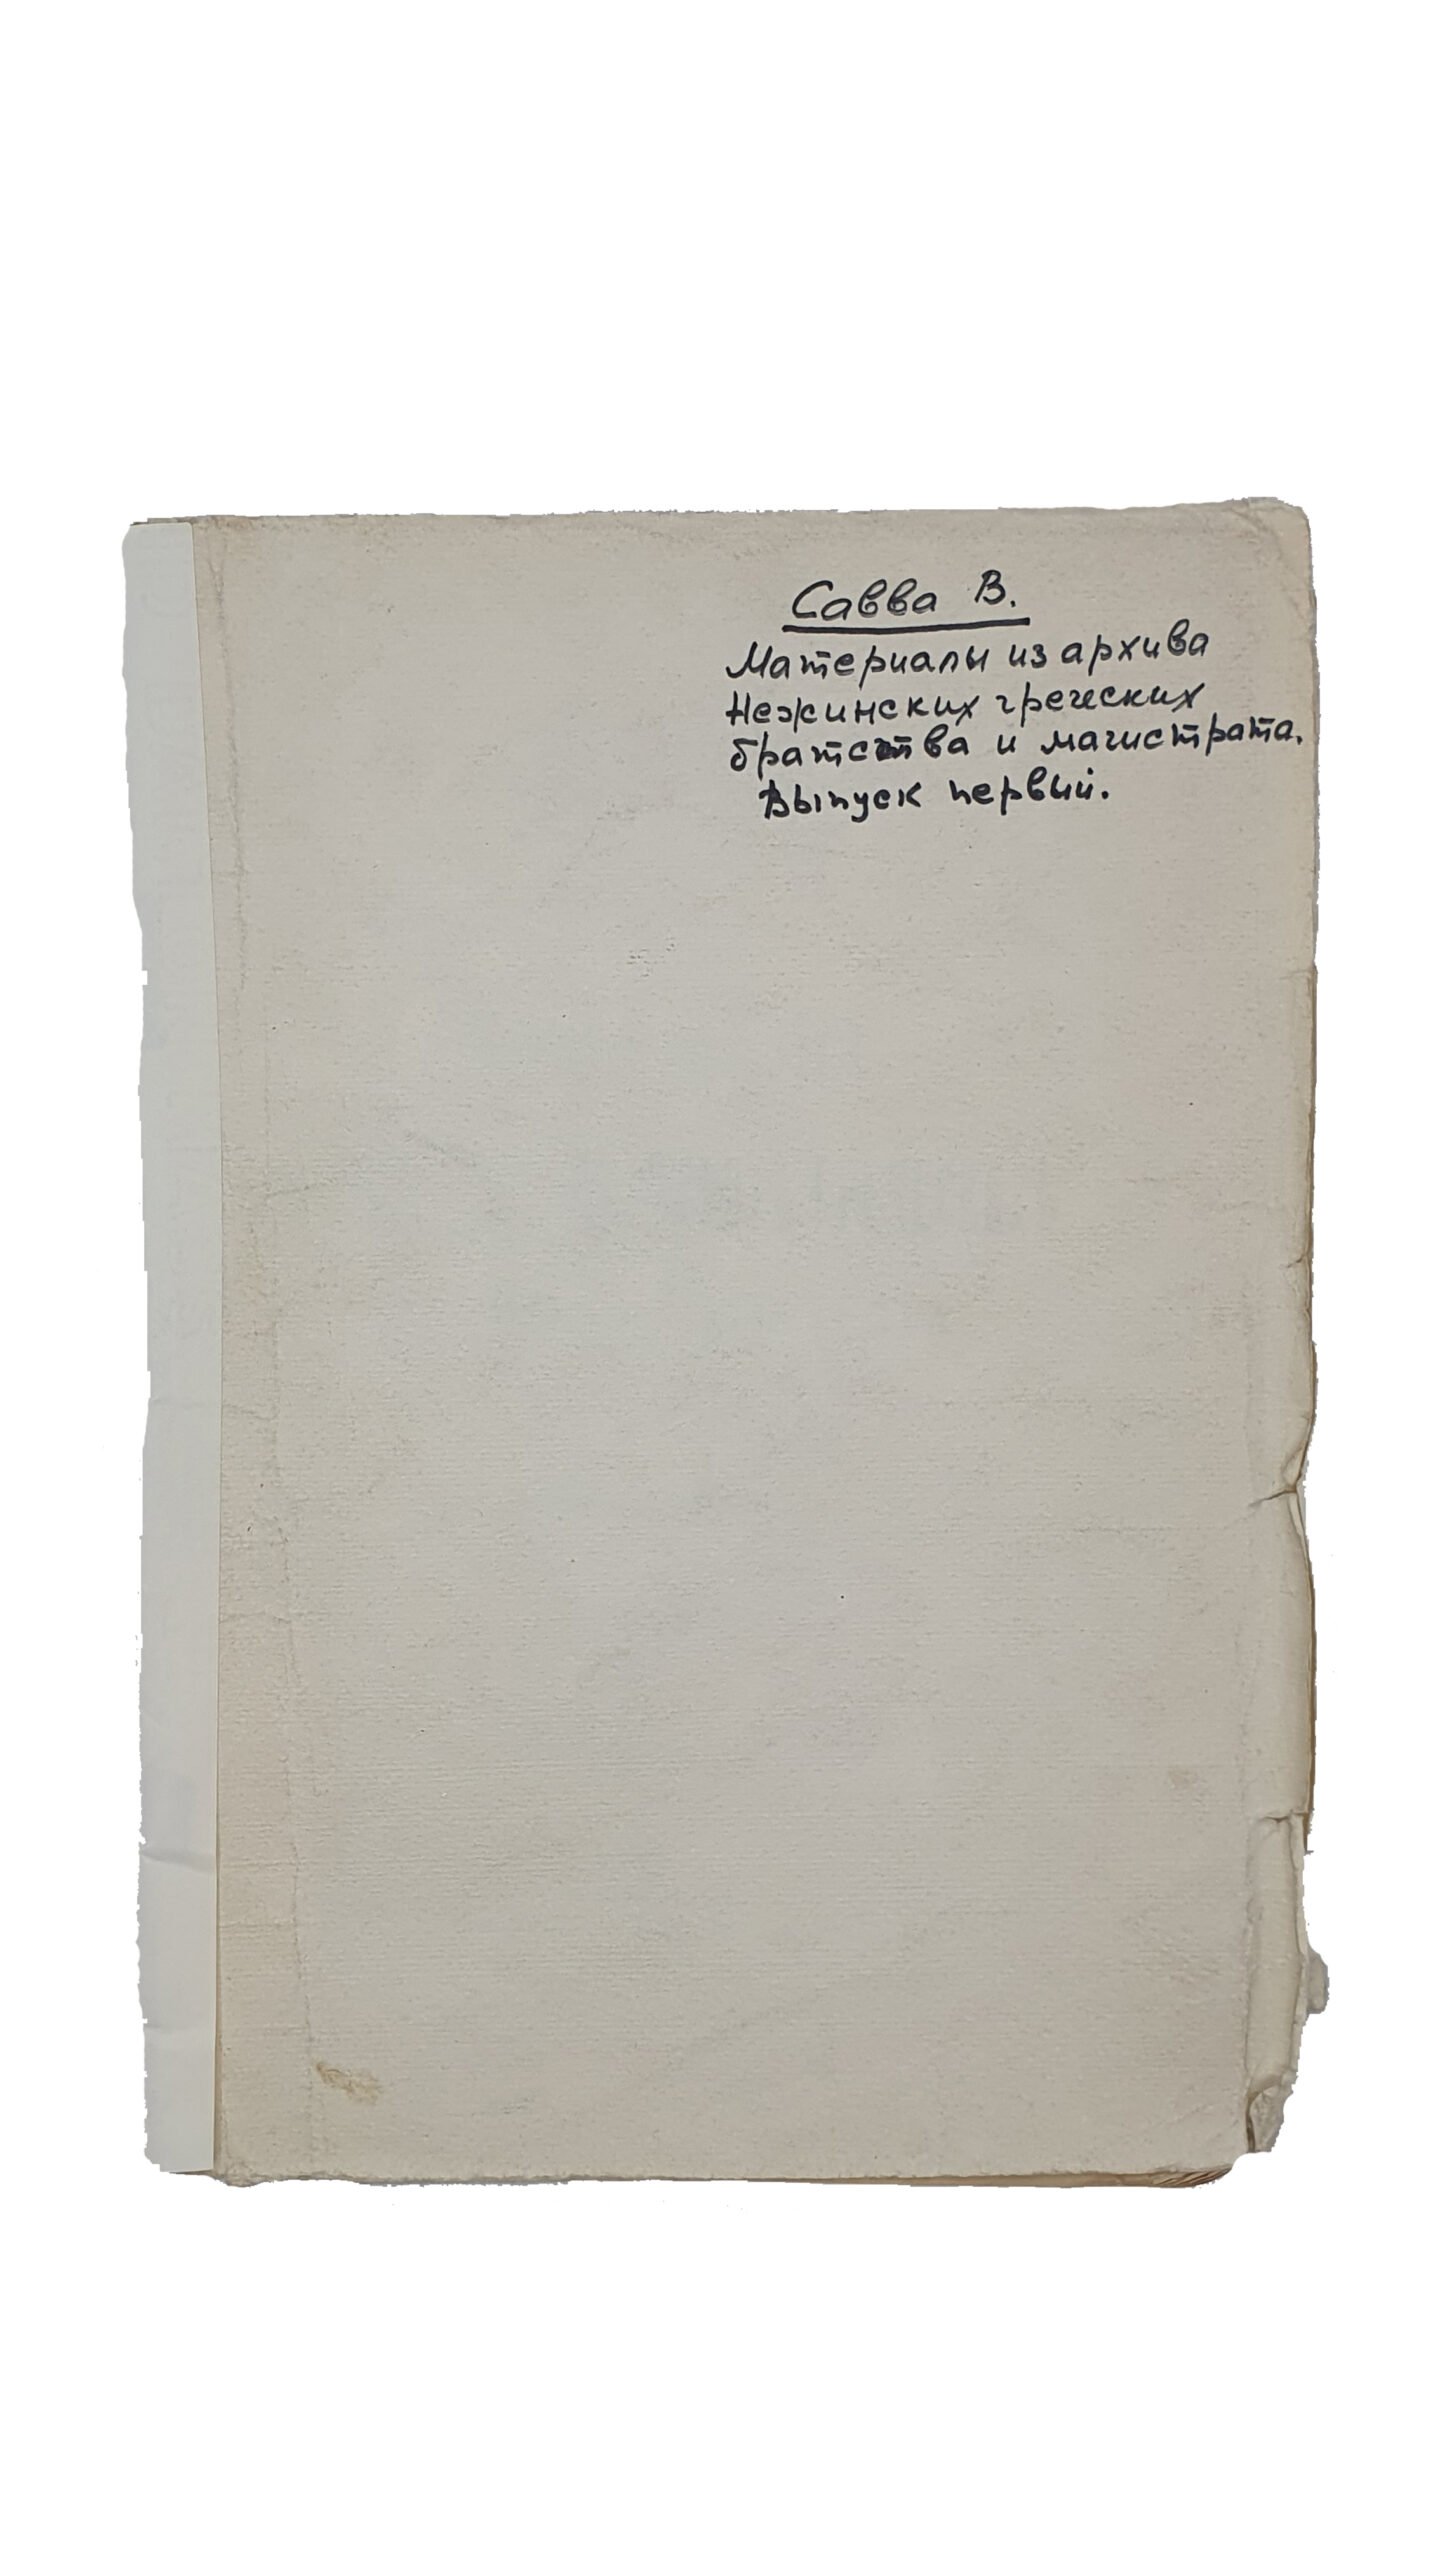 Савва В.
Материалы из архива
Нежинских греческих
братства и магистрата.
Выпуск первий.